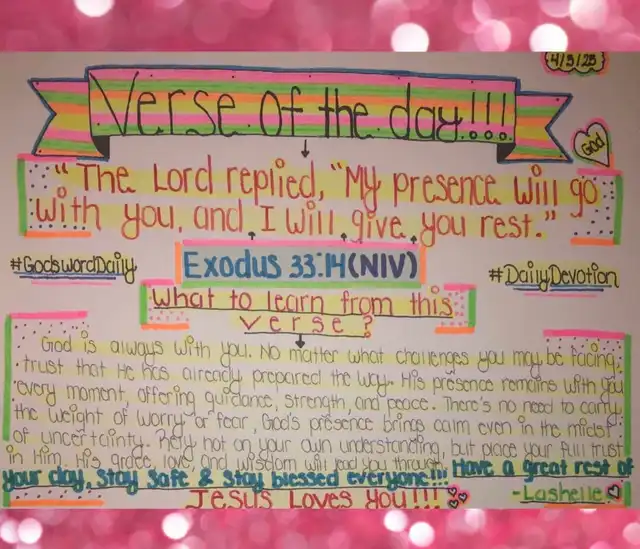 4/3/25
Verse of the day!!!
God
"The Lord replied, "My presence will go
with you, and I will give you rest."
Exodus 33:14(NIV)
#GodswordDaily
#DailyDevotion
What to learn from this
verse?
God is always with you. No matter what challenges you may be facing,
trust that He has already prepared the way. His presence remains with you
every moment, offering guidance, strength, and peace. There's no need to carry
the weight of worry or fear, God's presence brings calm even in the midst
of uncertainty. Rely not on your own understanding, but place your full trust
in Him. His grace, love, and wisdom will lead you through. Have a great rest of
your day, Stay Safe & Stay blessed everyone!!!
Jesus Loves You!!!
-Lashelle